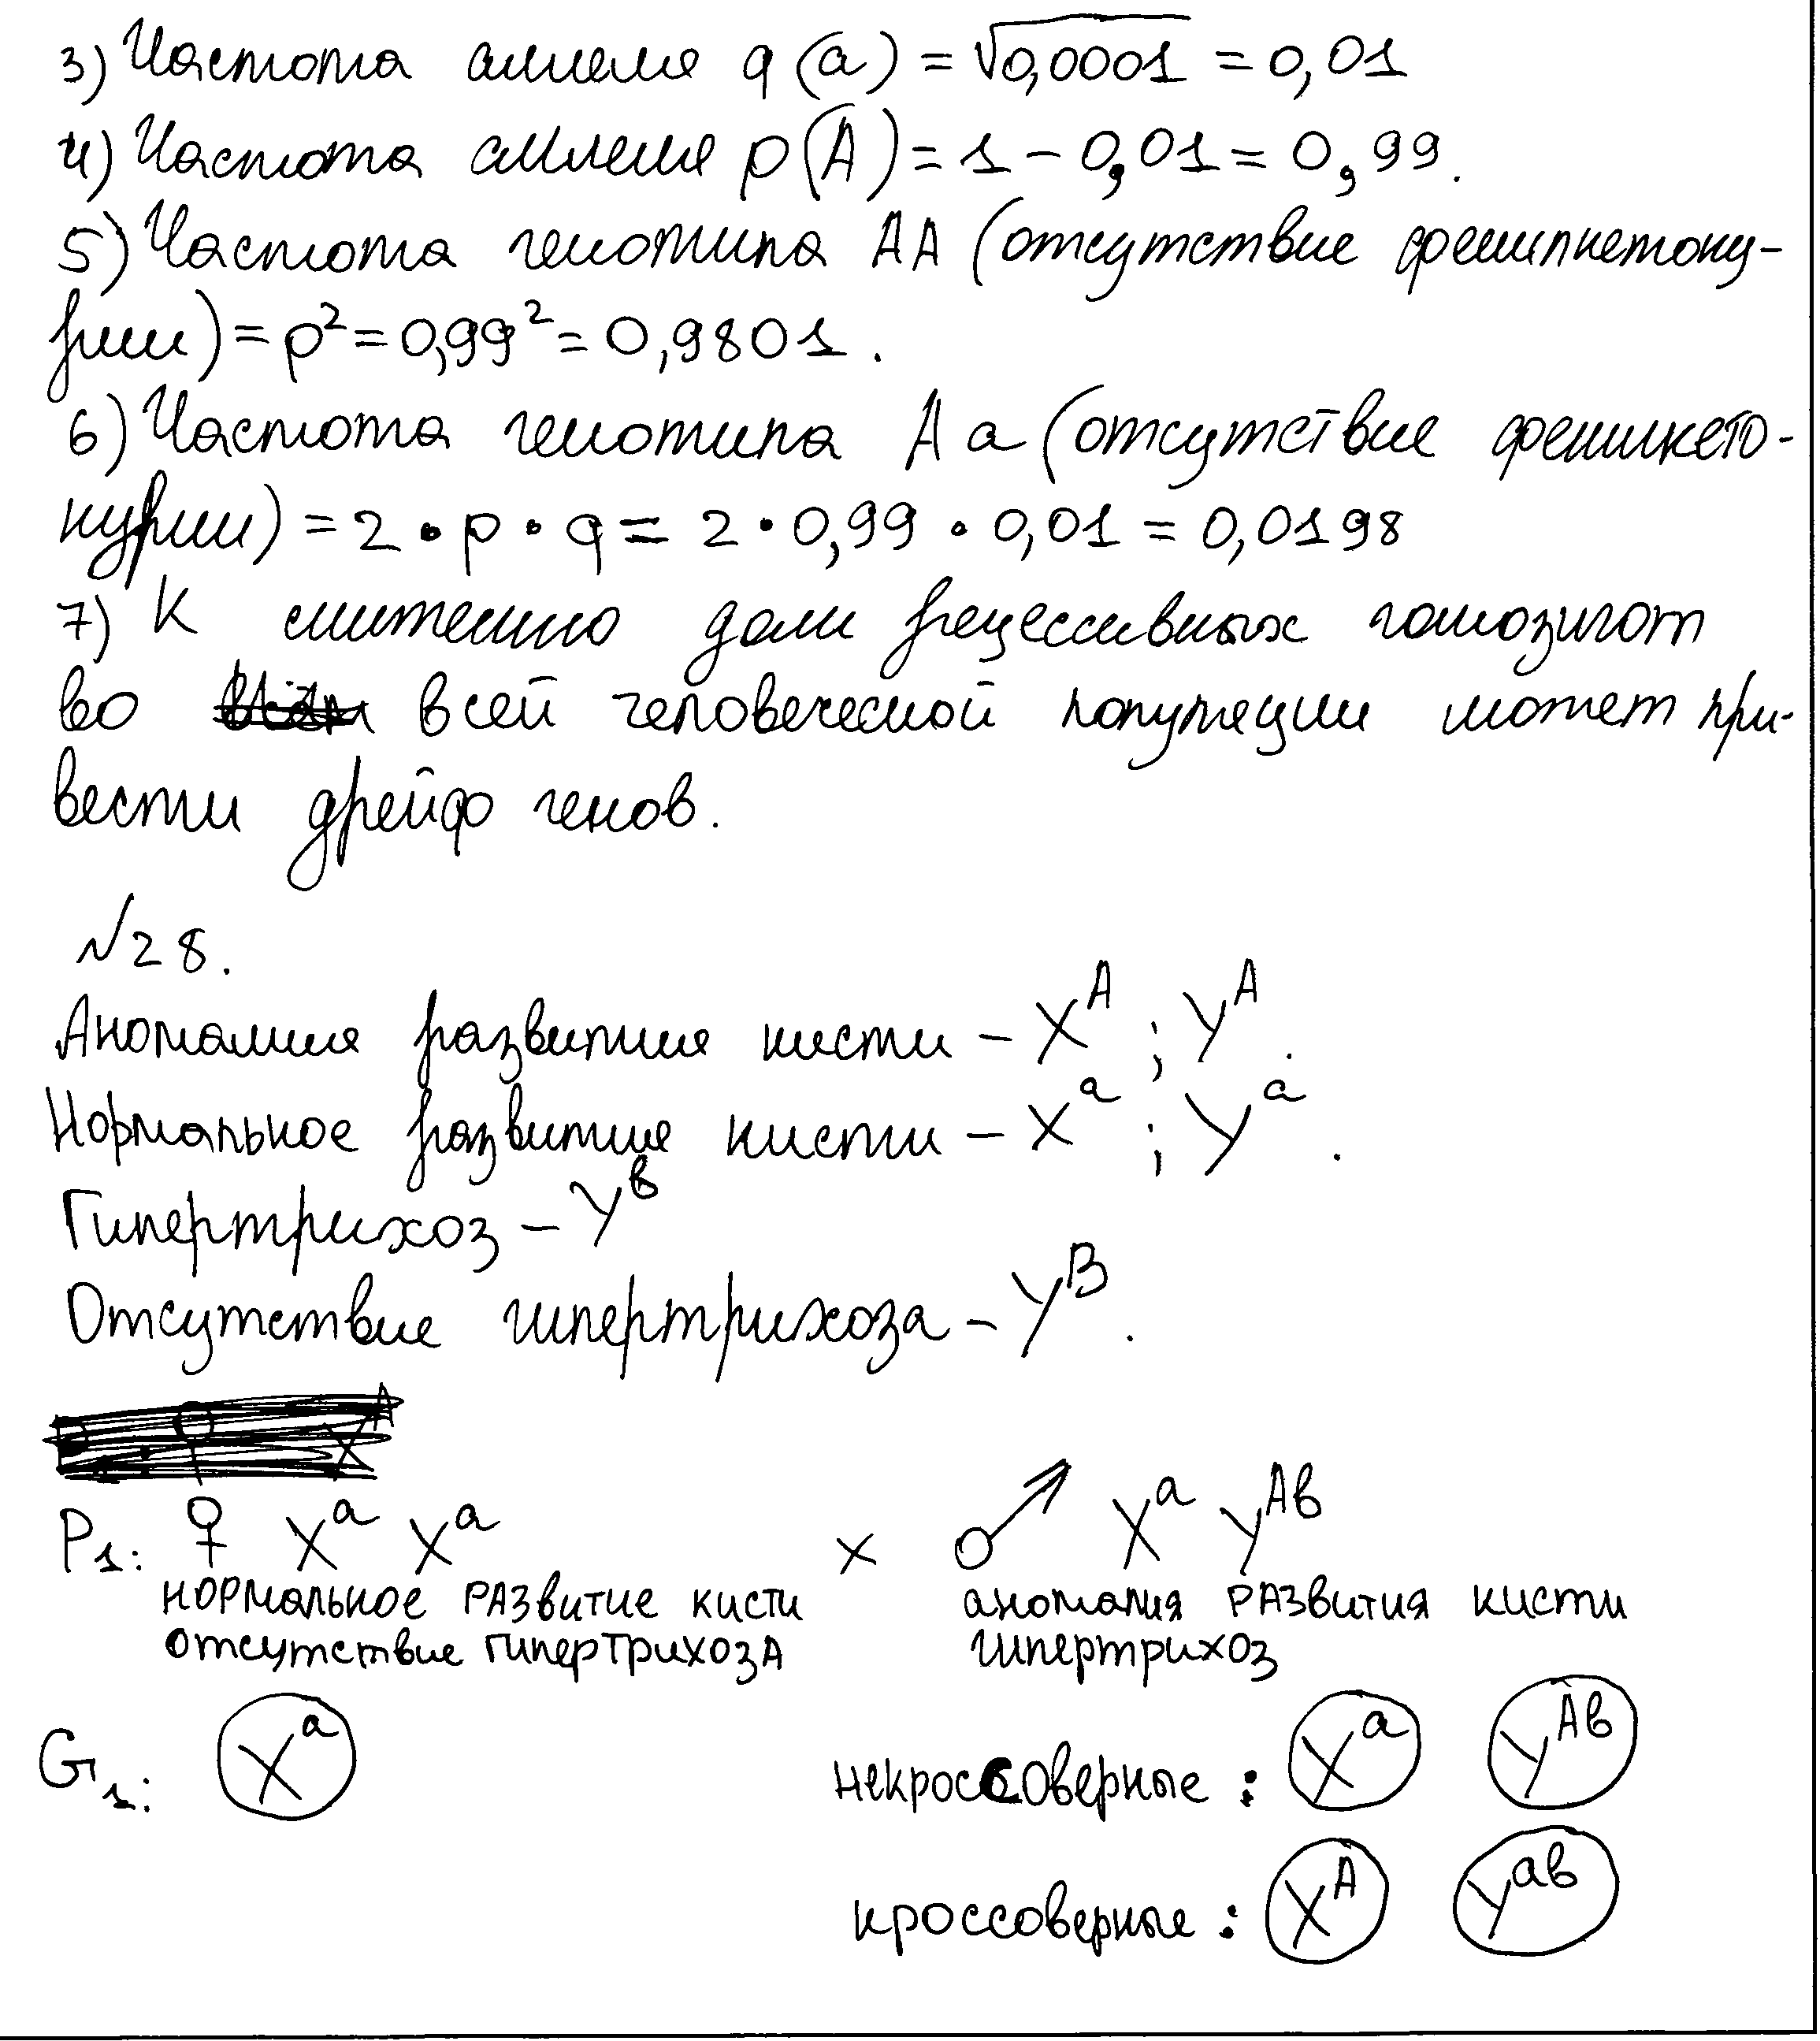 3) Частота аллеля q (a) = √0,0001 = 0,01
4) Частота аллеля p (A) = 1 - 0,01 = 0,99.
5) Частота генотипа AA (отсутствие фенилкетону-
рии) = p² = 0,99² = 0,9801.
6) Частота генотипа Aa (отсутствие фенилкето-
нурии) = 2 • p • q = 2 • 0,99 • 0,01 = 0,0198
7) К снижению доли рецессивных гомозигот
во всей человеческой популяции может при-
вести дрейф генов.
№28.
Аномалия развития кисти - Xᴬ ; Yᴬ.
Нормальное развитие кисти - Xᵃ ; Yᵃ.
Гипертрихоз - Yᵇ
Отсутствие гипертрихоза - Yᴮ.
P₁: ♀ Xᵃ Xᵃ x ♂ Xᵃ Yᴬᵇ
нормальное развитие кисти аномалия развития кисти
отсутствие гипертрихоза гипертрихоз
G₁: Xᵃ некроссоверные : Xᵃ Yᴬᵇ
кроссоверные : Xᴬ Yᵃᵇ